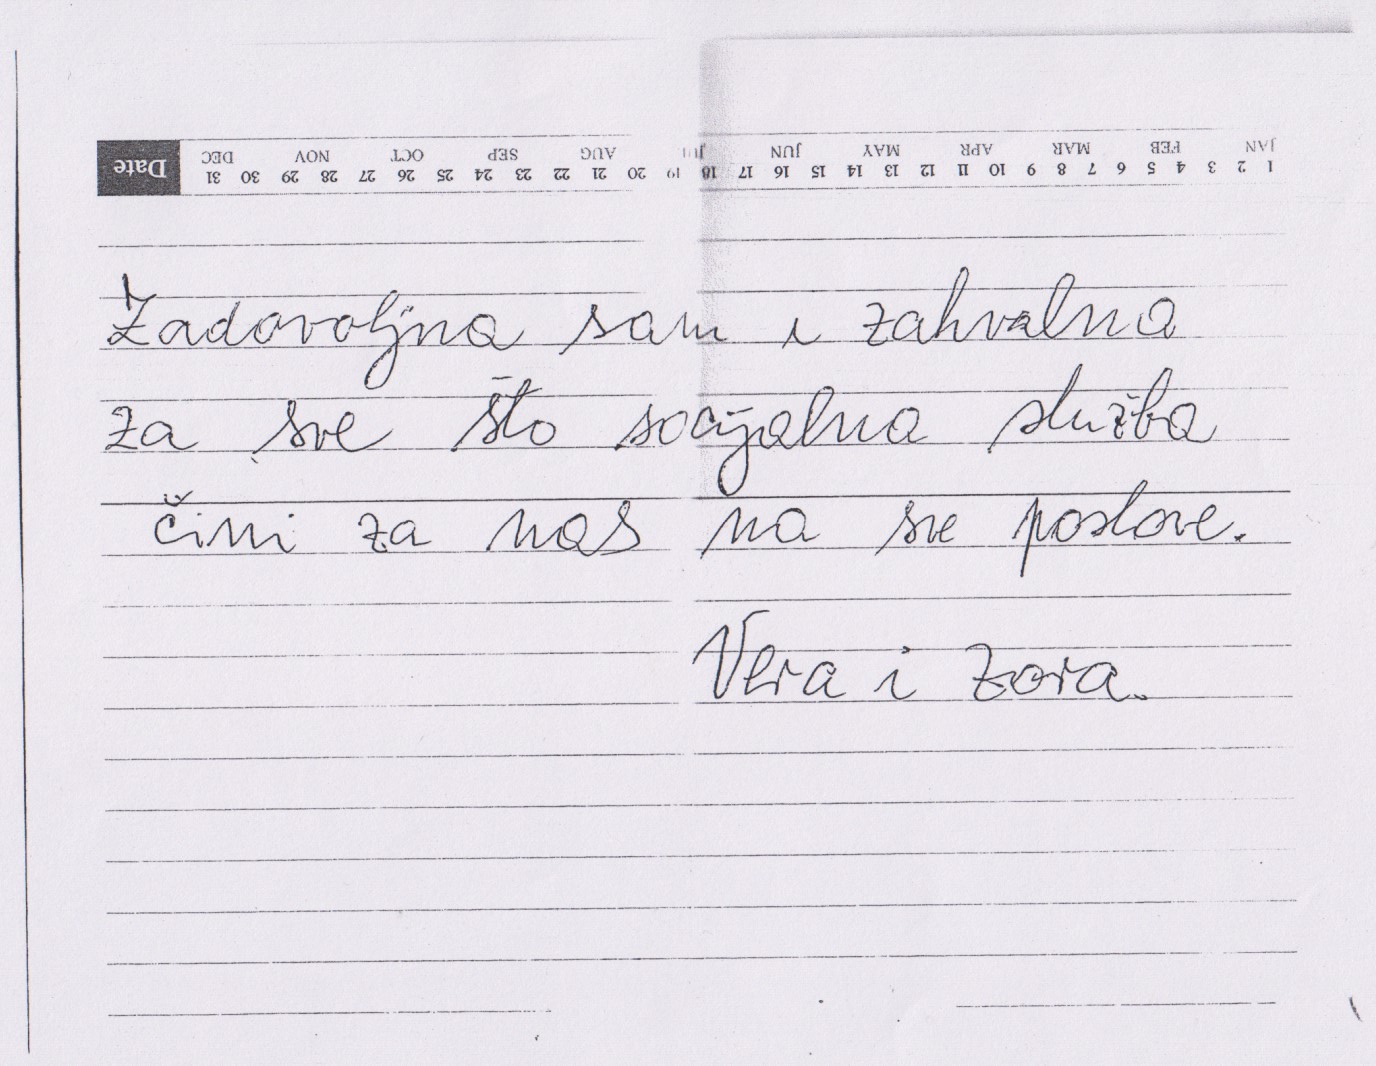 Date
DEC NOV OCT SEP AUG JUL JUN MAY APR MAR FEB JAN
31 30 29 28 27 26 25 24 23 22 21 20 19 18 17 16 15 14 13 12 11 10 9 8 7 6 5 4 3 2 1
Zadovoljna sam i zahvalna
za sve što socijalna služba
čini za nas na sve poslove.
Vera i Zora.